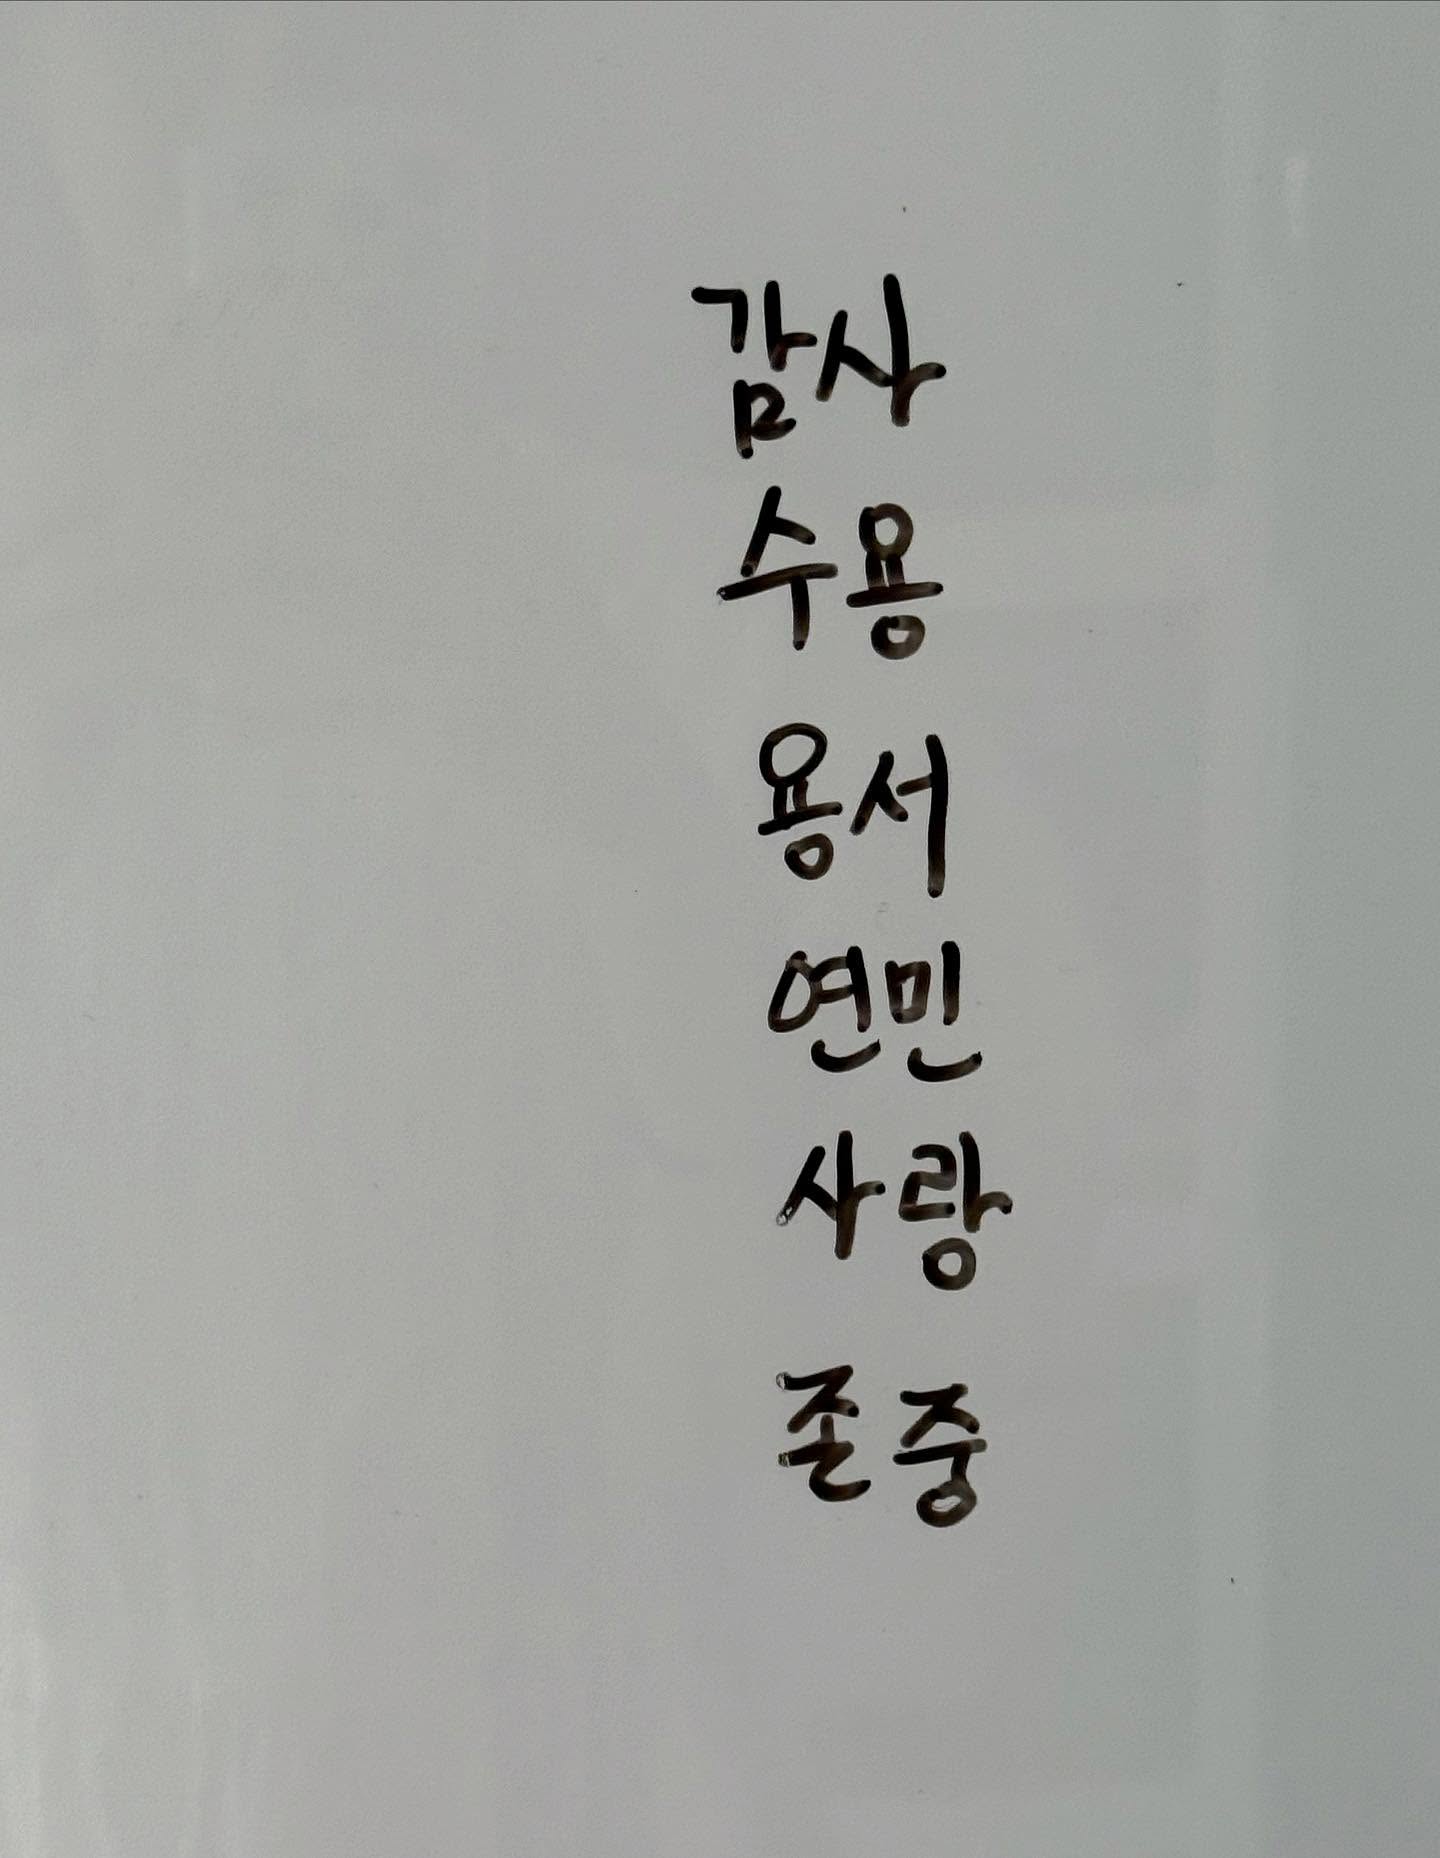 감사
수용
용서
연민
사랑
존중